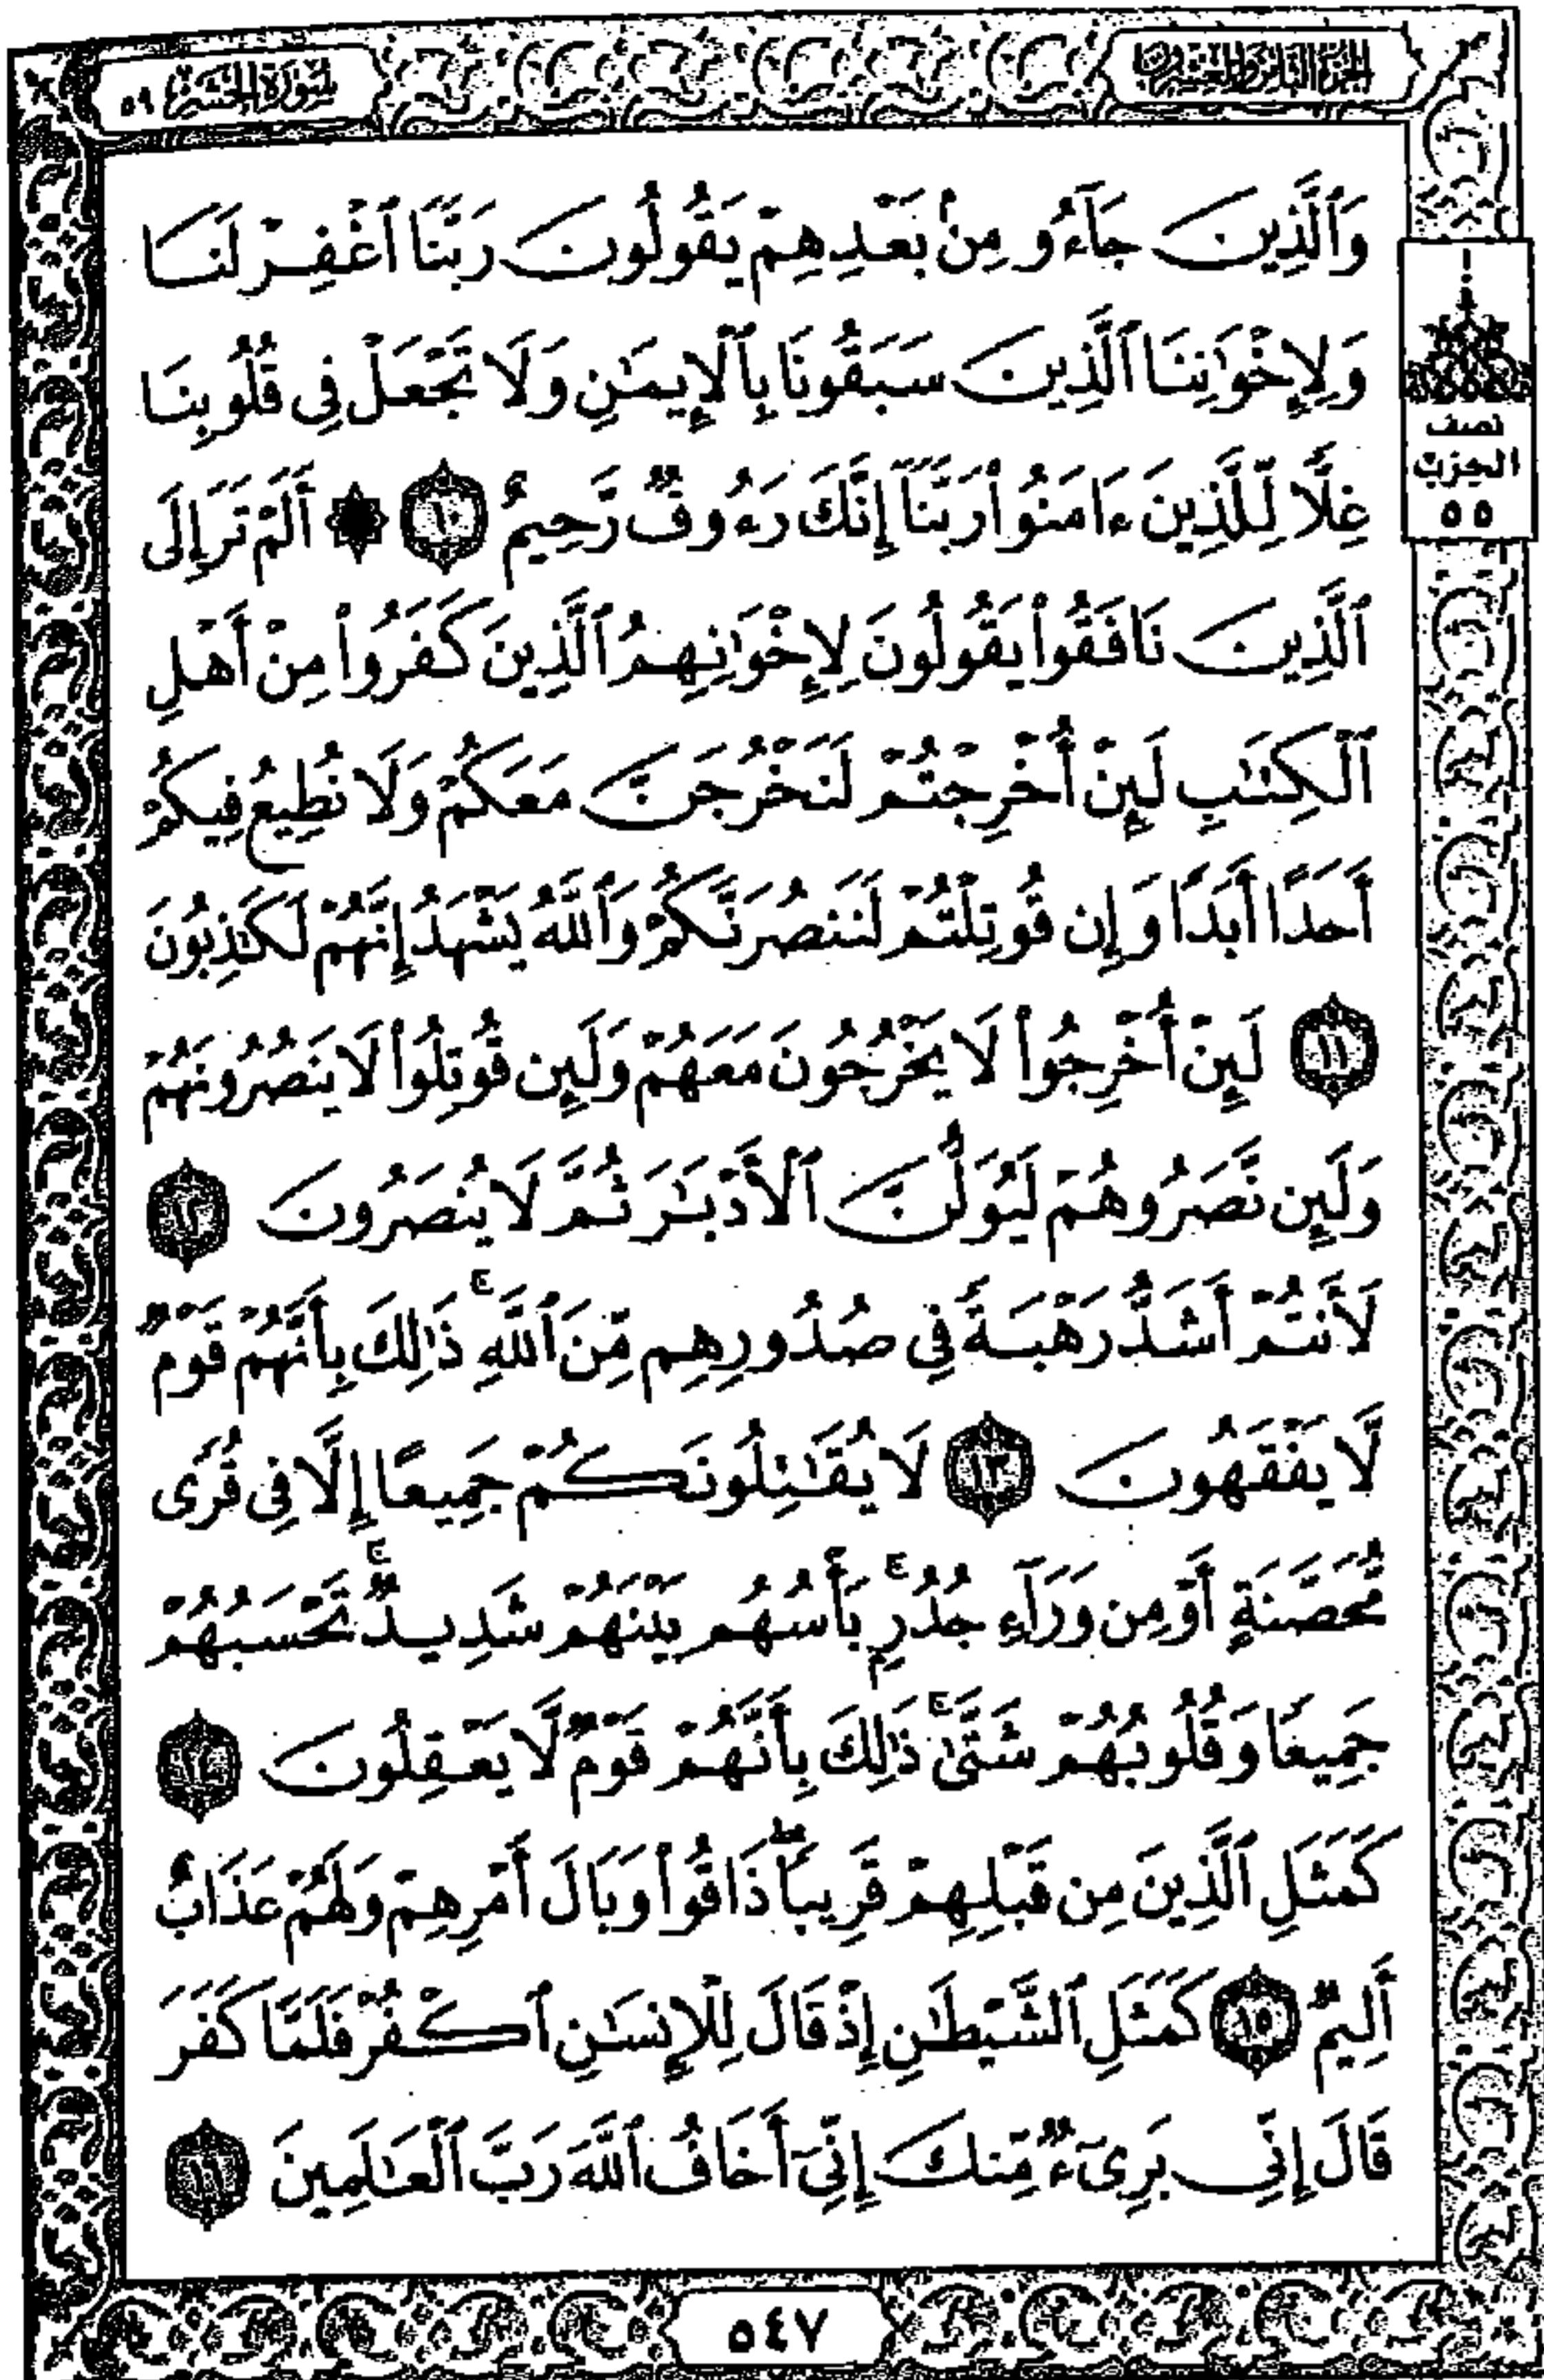 الجزء الثامن والعشرون
سورة الحشر ٥٩
وَٱلَّذِينَ جَآءُو مِنۢ بَعْدِهِمْ يَقُولُونَ رَبَّنَا ٱغْفِرْ لَنَا
وَلِإِخْوَٰنِنَا ٱلَّذِينَ سَبَقُونَا بِٱلْإِيمَٰنِ وَلَا تَجْعَلْ فِى قُلُوبِنَا
غِلًّا لِّلَّذِينَ ءَامَنُوا۟ رَبَّنَآ إِنَّكَ رَءُوفٌ رَّحِيمٌ ١٠ ۞ أَلَمْ تَرَ إِلَى
ٱلَّذِينَ نَافَقُوا۟ يَقُولُونَ لِإِخْوَٰنِهِمُ ٱلَّذِينَ كَفَرُوا۟ مِنْ أَهْلِ
ٱلْكِتَٰبِ لَئِنْ أُخْرِجْتُمْ لَنَخْرُجَنَّ مَعَكُمْ وَلَا نُطِيعُ فِيكُمْ
أَحَدًا أَبَدًا وَإِن قُوتِلْتُمْ لَنَنصُرَنَّكُمْ وَٱللَّهُ يَشْهَدُ إِنَّهُمْ لَكَٰذِبُونَ
١١ لَئِنْ أُخْرِجُوا۟ لَا يَخْرُجُونَ مَعَهُمْ وَلَئِن قُوتِلُوا۟ لَا يَنصُرُونَهُمْ
وَلَئِن نَّصَرُوهُمْ لَيُوَلُّنَّ ٱلْأَدْبَٰرَ ثُمَّ لَا يُنصَرُونَ ١٢
لَأَنتُمْ أَشَدُّ رَهْبَةً فِى صُدُورِهِم مِّنَ ٱللَّهِ ۚ ذَٰلِكَ بِأَنَّهُمْ قَوْمٌ
لَّا يَفْقَهُونَ ١٣ لَا يُقَٰتِلُونَكُمْ جَمِيعًا إِلَّا فِى قُرًى
مُّحَصَّنَةٍ أَوْ مِن وَرَآءِ جُدُرٍۭ ۚ بَأْسُهُم بَيْنَهُمْ شَدِيدٌ ۚ تَحْسَبُهُمْ
جَمِيعًا وَقُلُوبُهُمْ شَتَّىٰ ۚ ذَٰلِكَ بِأَنَّهُمْ قَوْمٌ لَّا يَعْقِلُونَ ١٤
كَمَثَلِ ٱلَّذِينَ مِن قَبْلِهِمْ قَرِيبًا ۖ ذَاقُوا۟ وَبَالَ أَمْرِهِمْ وَلَهُمْ عَذَابٌ
أَلِيمٌ ١٥ كَمَثَلِ ٱلشَّيْطَٰنِ إِذْ قَالَ لِلْإِنسَٰنِ ٱكْفُرْ فَلَمَّا كَفَرَ
قَالَ إِنِّى بَرِىٓءٌ مِّنكَ إِنِّىٓ أَخَافُ ٱللَّهَ رَبَّ ٱلْعَٰلَمِينَ ١٦
نصف
الحزب
٥٥
٥٤٧